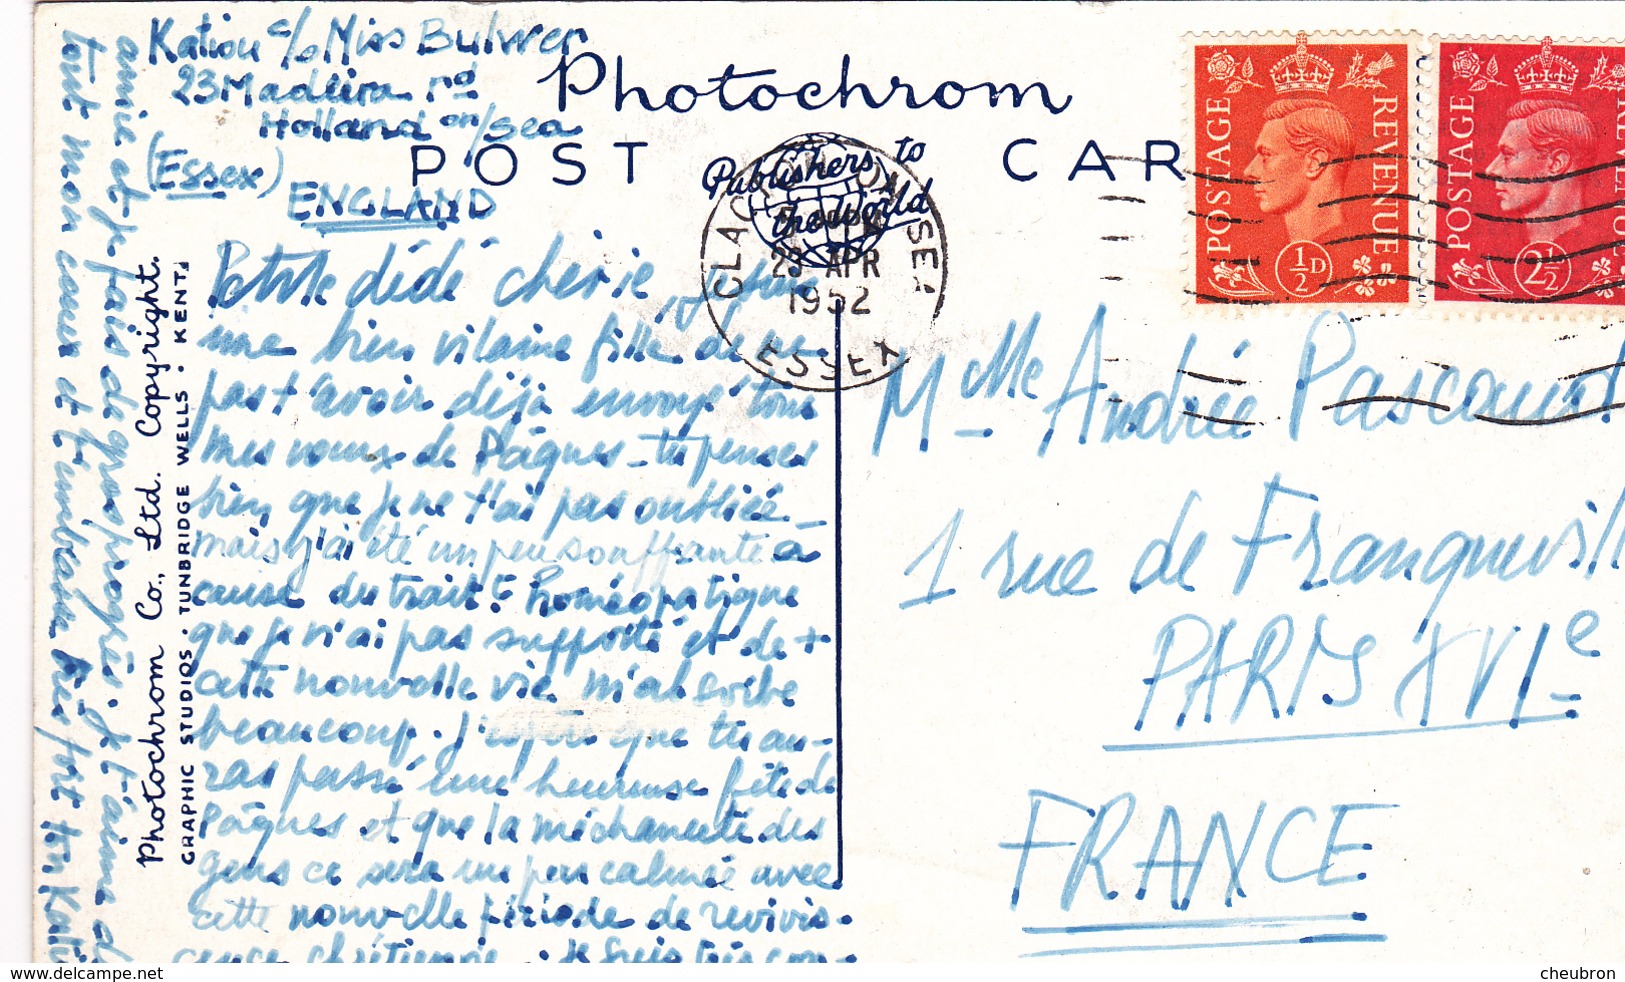 Katiou c/o Miss Bulwer
23 Madeira rd
Holland on/sea
(Essex)
ENGLAND
Photochrom
POST CAR
Publishers to
the world
CLAC ON SEA
23 APR
1952
ESSEX
POSTAGE REVENUE
½D
POSTAGE REVENUE
2½
Petite dédé chérie, je suis
une bien vilaine fille de ne
pas t'avoir déjà envoyé tous
mes voeux de Pâques - tu penses
bien que je ne t'ai pas oubliée -
mais j'ai été un peu souffrante à
cause du trait.t homéopatique
que je n'ai pas supporté et de +
cette nouvelle vie m'absorbe
beaucoup. J'espère que tu au-
ras passé une heureuse fête de
Pâques et que la méchanceté des
gens ce sera un peu calmée avec
cette nouvelle période de revivis-
cence chrétienne. Je suis très con-
Mlle Andrée
1 rue de Franquevill
PARIS XVIe
FRANCE
Photochrom Co., Ltd. Copyright.
GRAPHIC STUDIOS • TUNBRIDGE WELLS • KENT.
amie et je fais de gros progrès. Je t'aime de
tout mon coeur et t'embrasse très fort ton Kati
www.delcampe.net
cheubron